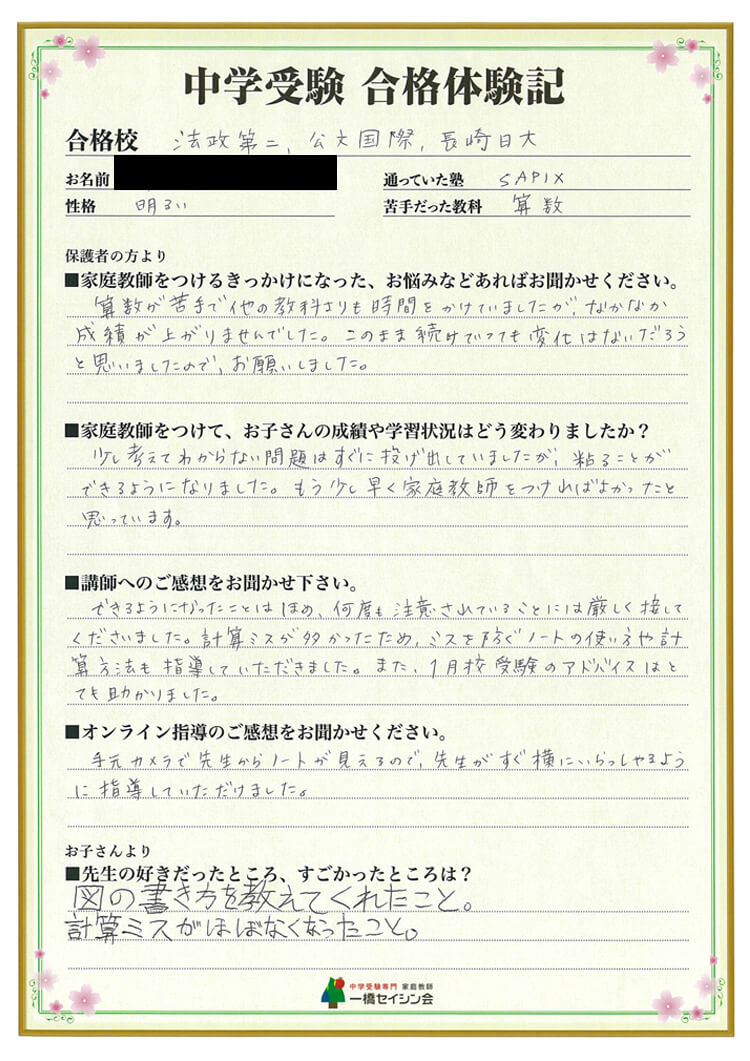 中学受験 合格体験記
合格校 法政第二, 公文国際, 長崎日大
お名前
通っていた塾 SAPIX
性格 明るい
苦手だった教科 算数
保護者の方より
■家庭教師をつけるきっかけになった、お悩みなどあればお聞かせください。
算数が苦手で他の教科よりも時間をかけていましたが、なかなか
成績が上がりませんでした。このまま続けていっても変化はないだろう
と思いましたので、お願いしました。
■家庭教師をつけて、お子さんの成績や学習状況はどう変わりましたか？
少し考えてわからない問題はすぐに投げ出していましたが、粘ることが
できるようになりました。もう少し早く家庭教師をつければよかったと
思っています。
■講師へのご感想をお聞かせ下さい。
できるようになったことはほめ、何度も注意されていることには厳しく接して
くださいました。計算ミスが多かったため、ミスを防ぐノートの使い方や計
算方法も指導していただきました。また、1月校受験のアドバイスはと
ても助かりました。
■オンライン指導のご感想をお聞かせください。
手元カメラで先生からノートが見えるので、先生がすぐ横にいらっしゃるよう
に指導していただけました。
お子さんより
■先生の好きだったところ、すごかったところは？
図の書き方を教えてくれたこと。
計算ミスがほぼなくなったこと。
中学受験専門 家庭教師
一橋セイシン会